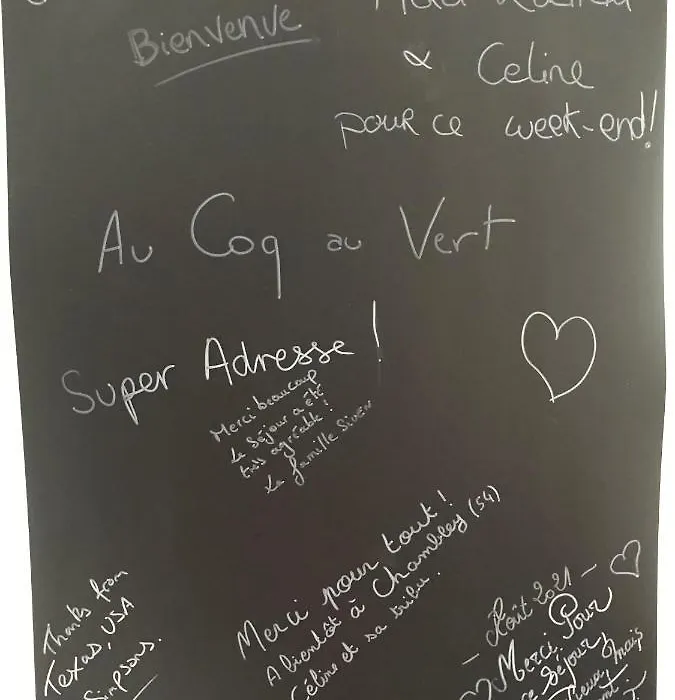 Bienvenue
& Celine
pour ce week-end!
Au Coq au Vert
Super Adresse !
Merci beaucoup
Le séjour a été
très agréable !
La famille
Merci pour tout !
A bientôt à Chambley (54)
Céline et sa tribu.
Thanks from
Texas, USA
Simpsons.
- Août 2021 -
Merci Pour
ce séjour,
mais